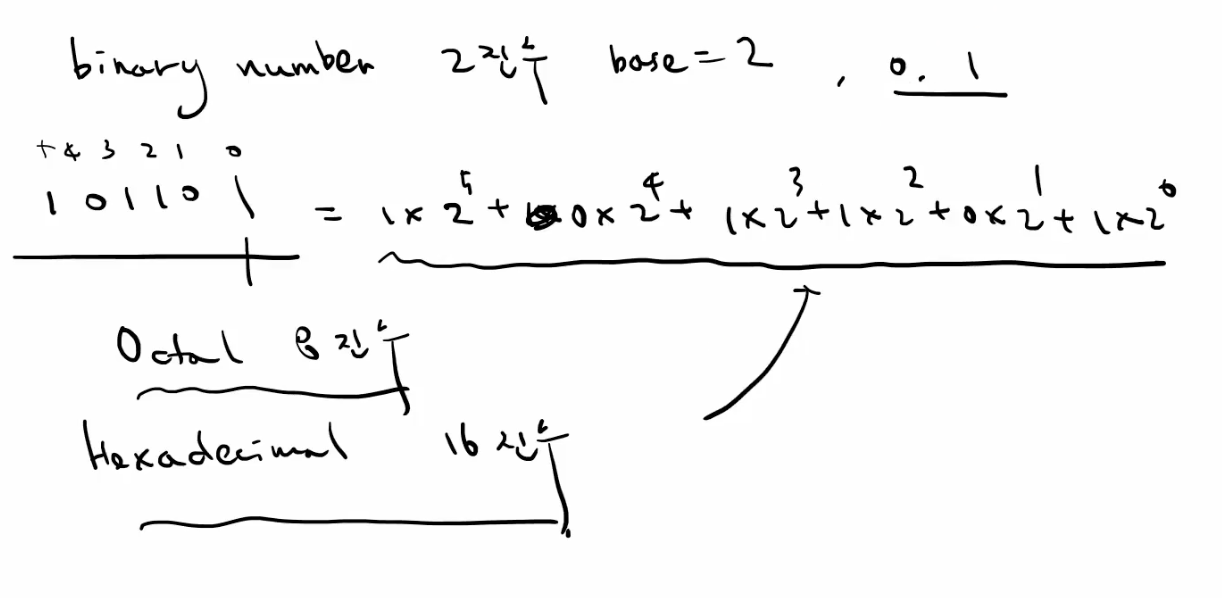 binary number 2진수 base = 2 , 0. 1
5 4 3 2 1 0
1 0 1 1 0 1 = 1×2⁵ + 0×2⁴ + 1×2³ + 1×2² + 0×2¹ + 1×2⁰
Octal 8진수
Hexadecimal 16진수